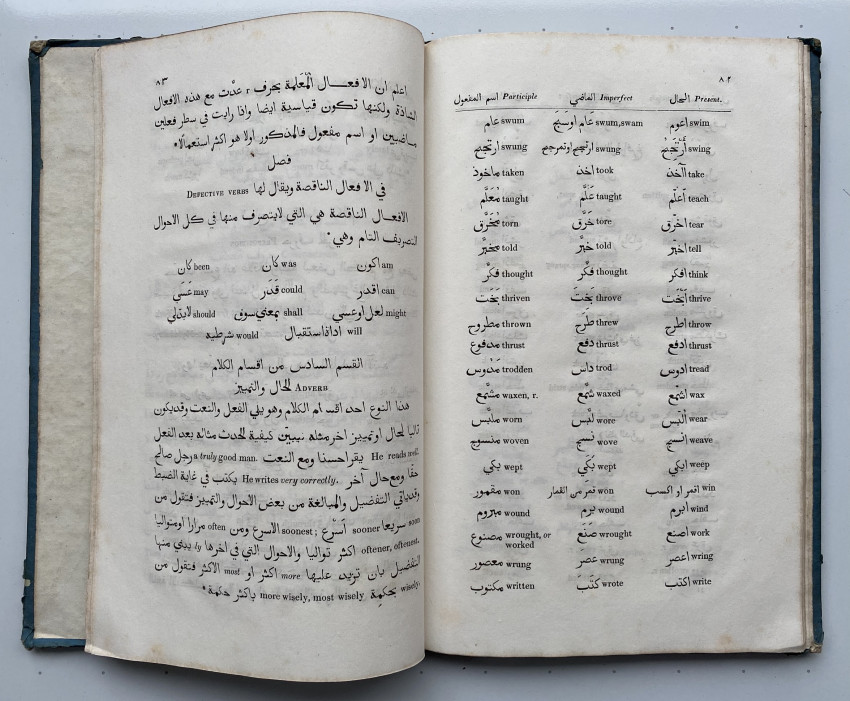 ٨٢
الحال Present. الماضي Imperfect اسم المفعول Participle
اعوم swim عام اوسبح swum, swam عام swum
أرتجح swing ارتجح اوتمرجح swung ارتجح swung
آخذ take اخذ took ماخوذ taken
اعلّم teach علَّم taught مُعَلَّم taught
اخرّق tear خرَّق tore مُخَرَّق torn
اخبّر tell خبَّر told مخبَّر told
افكر think فكَّر thought فكَّر thought
أبخت thrive بَخَتَ throve بَخَت thriven
اطرح throw طَرَح threw مطروح thrown
ادفع thrust دفع thrust مدفوع thrust
ادوس tread داس trod مَدْوس trodden
اشمّع wax شمَّع waxed مشمَّع waxen, r.
ألبس wear لبس wore ملبَّس worn
انسج weave نسج wove منسوج woven
ابكي weep بَكَي wept بكي wept
اقمر او اكسب win قمر من القمار won مقمور won
ابرم wind برم wound مبروم wound
اصنع work صَنَع wrought مصنوع wrought, or worked
اعصر wring عصر wrung معصور wrung
اكتب write كتَب wrote مكتوب written
٨٣
اعلم ان الافعال المُعَلمة بحرف r عدّت مع هذه الافعال
الشاذة ولكنها تكون قياسية ايضا واذا رايت في سطر فعلين
ماضيين او اسم مفعول فالمذكور اولا هو اكثر استعمالا*
فصل
في الافعال الناقصة ويقال لها DEFECTIVE VERBS
الافعال الناقصة هي التي لايتصرف منها في كل الاحوال
التصريف التام وهي*
اكون am كان was كان been
اقدر can قَدَر could عَسَى may
لعل اوعسي might بمعني سوف shall لابدلي should
اداة استقبال will شرطيه would
القسم السادس من اقسام الكلام
للحال والتمييز ADVERB
هذا النوع احد اقسام الكلام وهو يلي الفعل والنعت وقد يكون
تاليا لحال او تمييز اخر مثله تبيّن كيفية لحدث مثاله بعد الفعل
He reads well. يقراحسنا ومع النعت a truly good man. رجل صالح
حقًا ومع حال آخر He writes very correctly. يكتب في غاية الضبط
وقد ياتي التفضيل والمبالغة من بعض الاحوال والتمييز فتقول من
soon سريعا sooner أسرع ; soonest الاسرع ومن often مرارا اومتواليا
oftener, oftenest. اكثر تواليا والاحوال التي في اخرها ly يبني منها
التفضيل بان تزيد عليها more اكثر او most الاكثر فتقول من
wisely, بحكمة more wisely, most wisely باكثر حكمة*